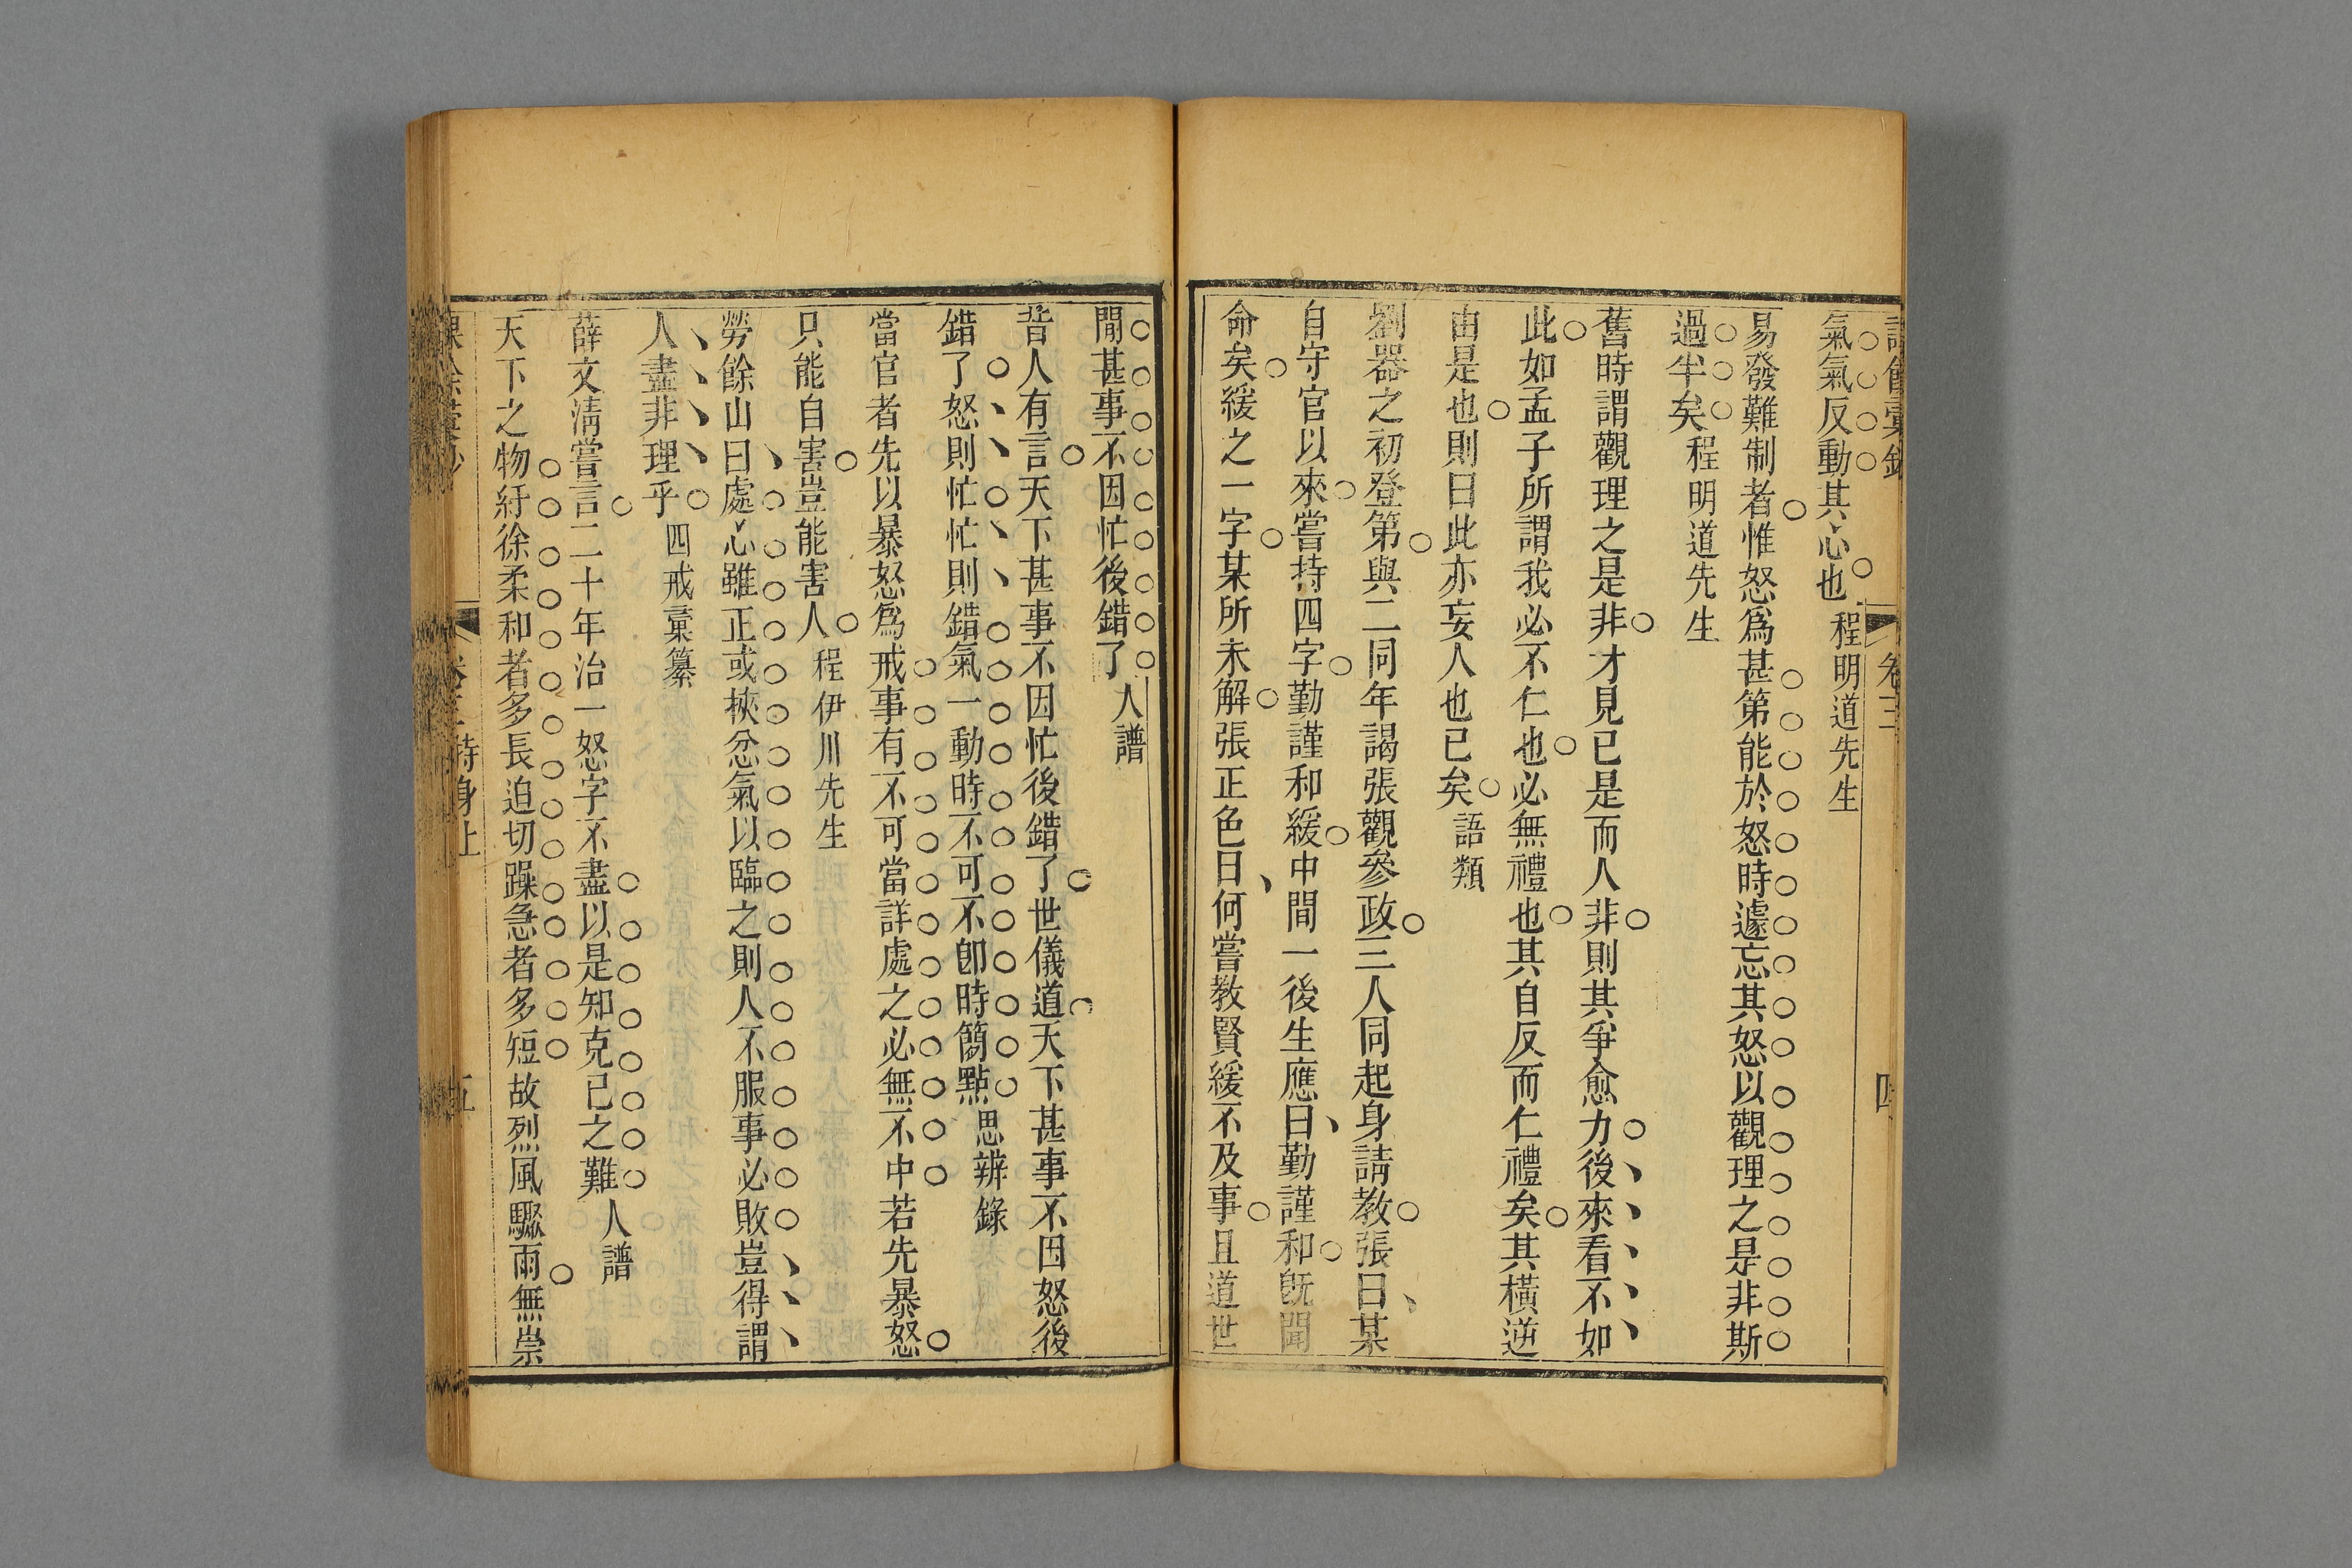 卷三
氣氣反動其心也程明道先生
易發難制者惟怒爲甚第能於怒時遽忘其怒以觀理之是非斯
過半矣程明道先生
舊時謂觀理之是非才見已是而人非則其爭愈力後來看不如
此如孟子所謂我必不仁也必無禮也其自反而仁禮矣其橫逆
由是也則曰此亦妄人也已矣語類
劉器之初登第與二同年謁張觀參政三人同起身請教張曰某
自守官以來嘗持四字勤謹和緩中間一後生應曰勤謹和旣聞
命矣緩之一字某所未解張正色曰何嘗教賢緩不及事且道世
閒甚事不因忙後錯了人譜
昔人有言天下甚事不因忙後錯了世儀道天下甚事不因怒後
錯了怒則忙忙則錯氣一動時不可不卽時簡點思辨錄
當官者先以暴怒爲戒事有不可當詳處之必無不中若先暴怒
只能自害豈能害人程伊川先生
勞餘山曰處心雖正或挾忿氣以臨之則人不服事必敗豈得謂
人盡非理乎四戒彙纂
薛文淸嘗言二十年治一怒字不盡以是知克己之難人譜
天下之物紓徐柔和者多長迫切躁急者多短故烈風驟雨無崇
持身上
五